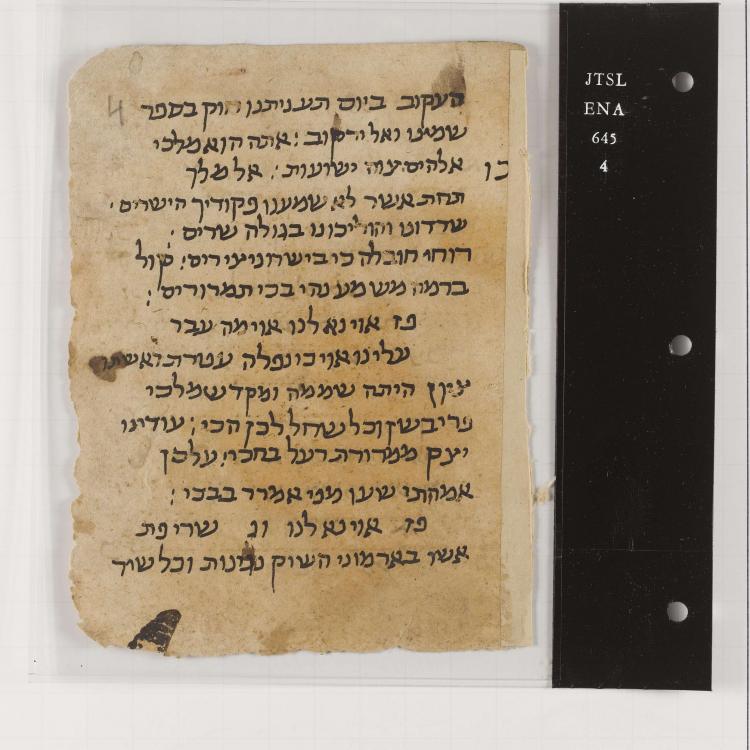 העקוב ביום תעניתנו חוק בספר
שמינו ואל ירקוב : אתה הוא מלכי
אלהים צוה ישועות : אל מלך
כו
תחת אשר לא שמענו פקודיך הישרים :
שדדונו והוליכונו בגולה שרים :
רוחי חובלה כי בישרוני צירים : קול
ברמה נשמע נהי בכי תמרורים :
פז אוי נא לנו אוי מה עבר
עלינו אוי כי נפלה עטרת ראשינו
ציון היתה שממה ומקדש מלכי
יונק עלבן
אמהתי שען מני אמרר בבכי :
פז אוי נא לנו וג שריפת
אשר בארמוני השוק נפינות וכל שיר
4
JTSL
ENA
645
4